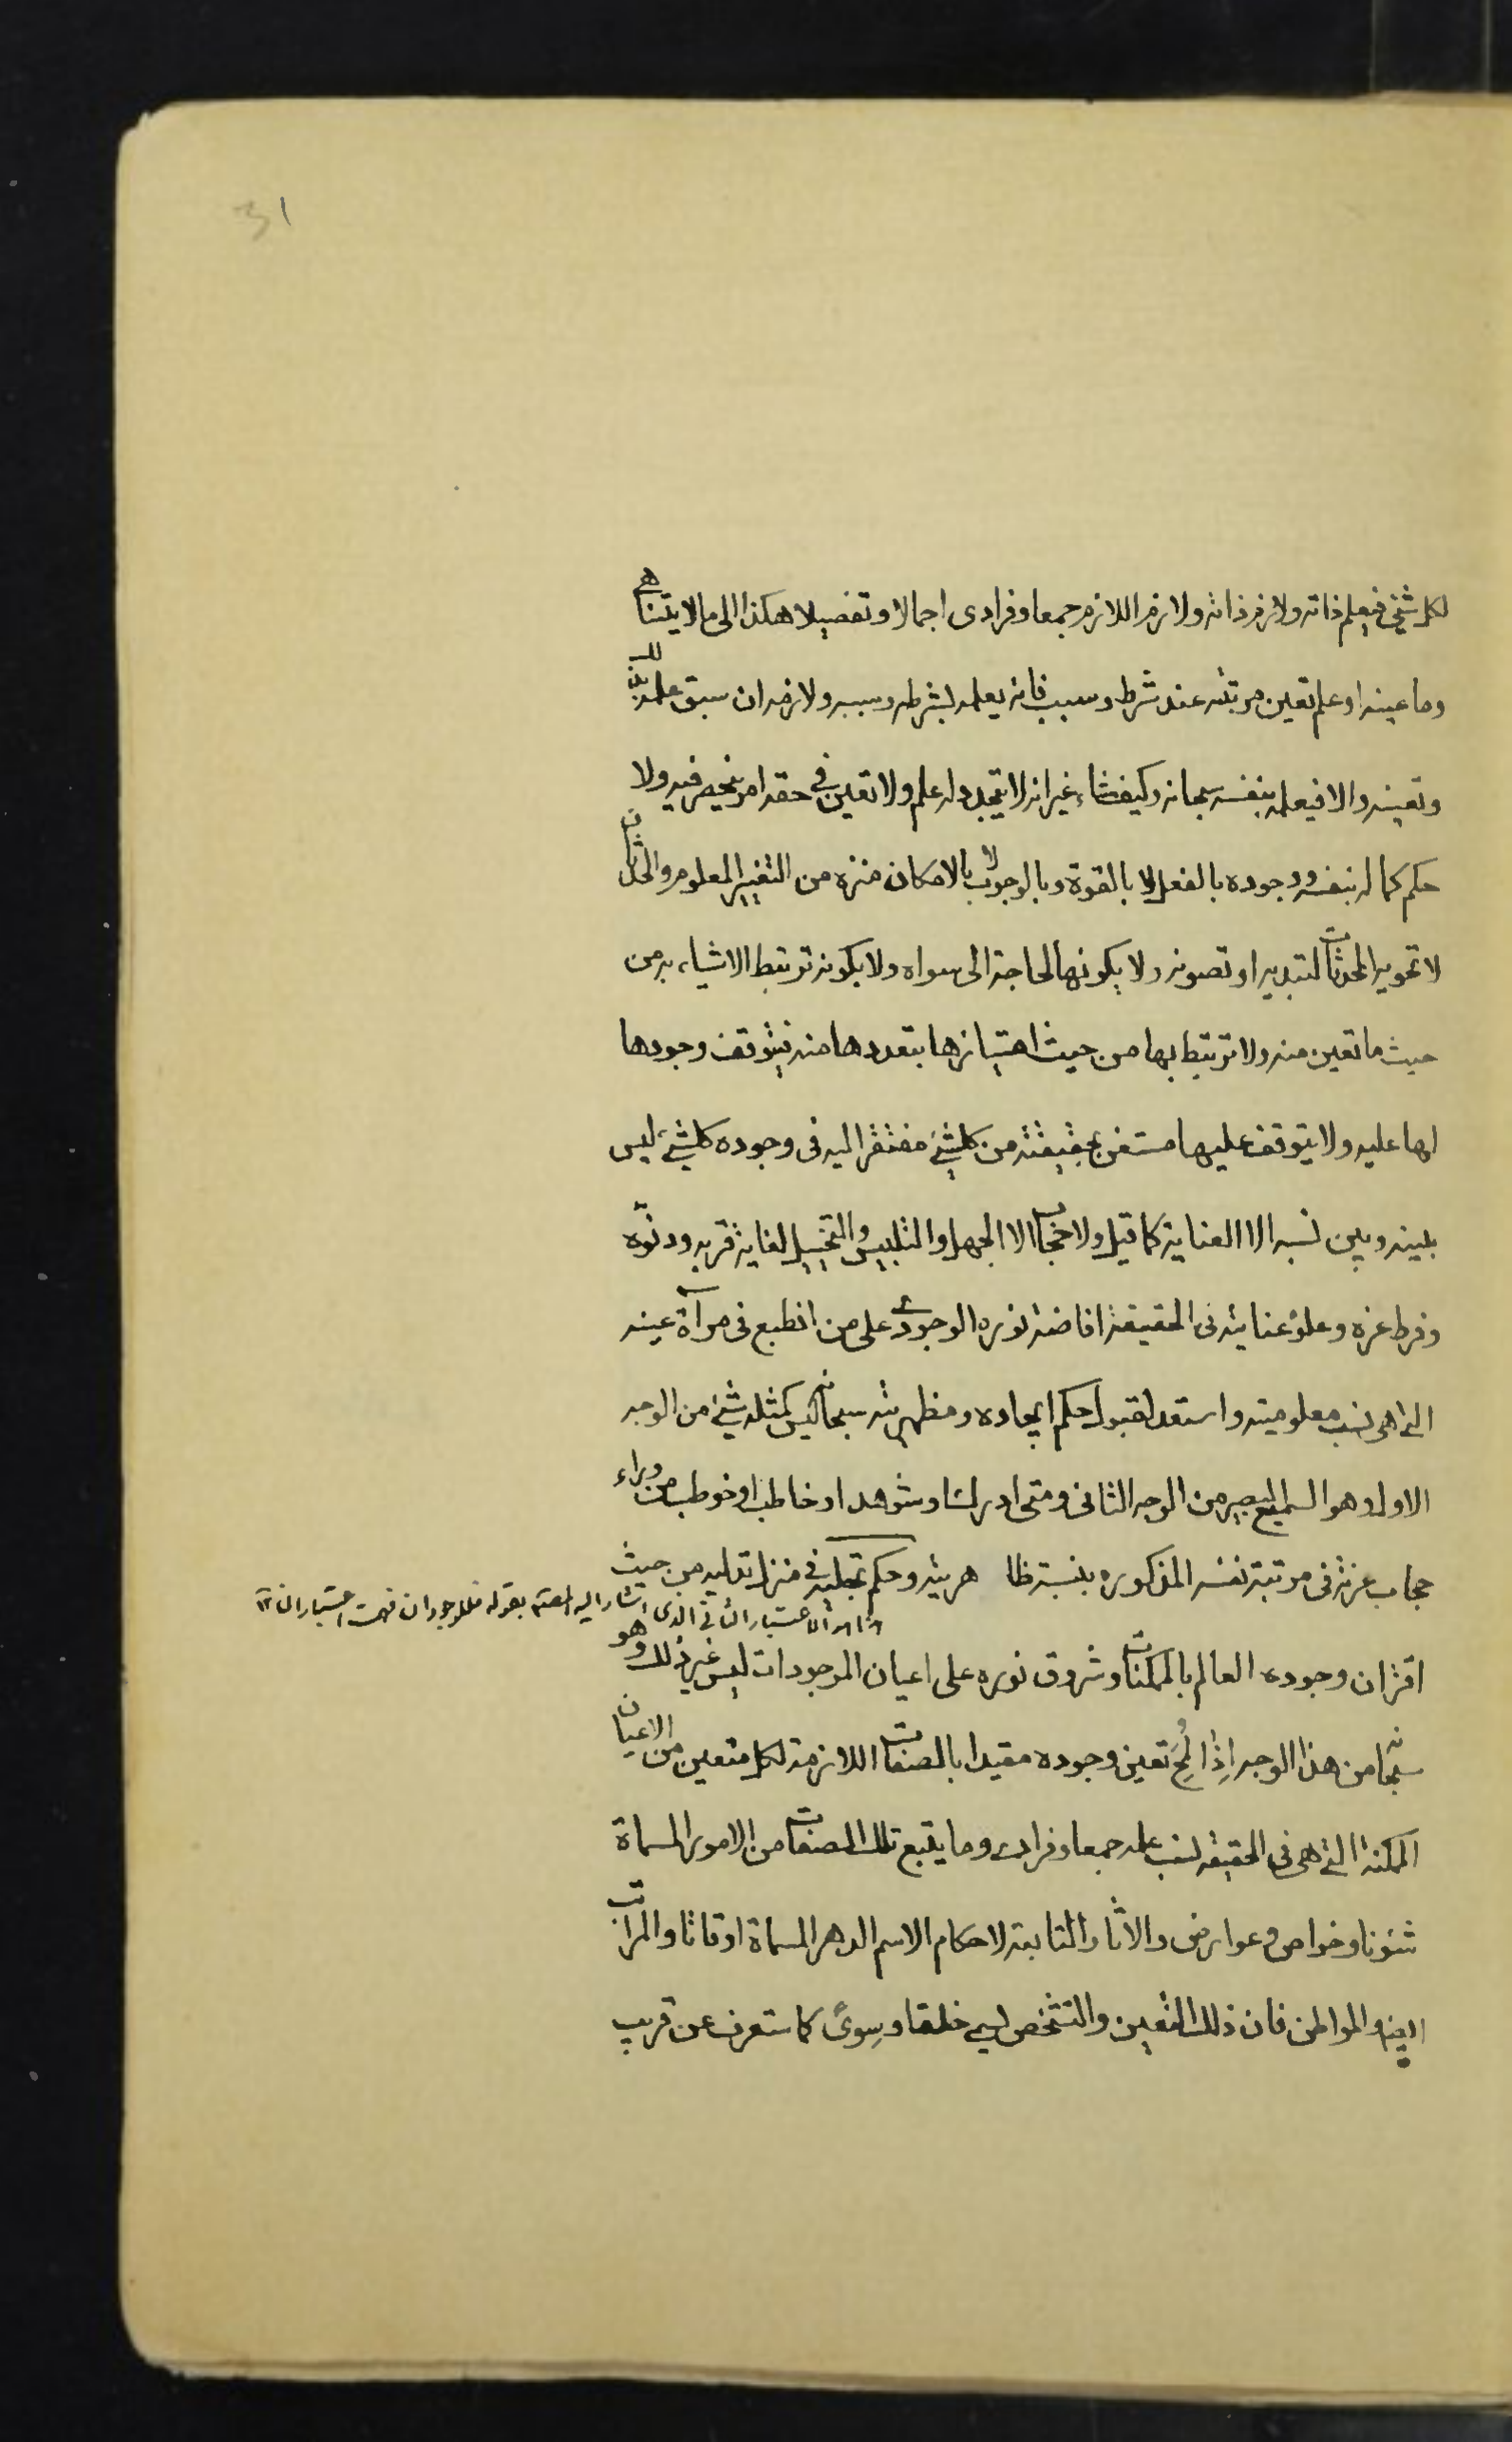 31
لكل شيء فيعلم ذاته ولازم ذاته ولازم اللازم جمعا وفرادى اجمالا وتفصيلا هكذا الى ما لا يتناهى
وما عينه او علم تعين مرتبته عند شرط وسبب فانه يعلمه بشرطه وسببه ولازمه ان سبق علمه بذلك
وتعينه والا فيعلمه بنفسه سبحانه وكيف شاء غير انه لا يتجدد له علم ولا تعين في حقه امر ينحصر فيه ولا
حكم كماله بنفسه ووجوده بالفعل لا بالقوة وبالوجوب لا بالامكان منزه من التغيير المعلوم والحدثان
لا تحويه المحدثات لتبديه او تصونه ولا يكونها لحاجة الى سواه ولا يكونه ترتبط الاشياء به من
حيث ما تعين منه ولا ترتبط بها من حيث امتيازها بتعددها منه فيتوقف وجودها
لها عليه ولا يتوقف عليها مستغن بحقيقته من كل شيء مفتقر اليه في وجوده كل شيء ليس
بينه وبين نسبه الا العناية كما قيل ولا حجاب الا الجهل والتلبيس والتخييل لغاية قربه ودنوّه
وفرط عزه وعلوّ عنايته في الحقيقة افاضة نوره الوجودى على من انطبع في مرآة عينه
التي هي نسب معلوميته واستعد لقبول حكم ايجاده ومظهريته سبحانه ليس كمثله شيء من الوجه
الاول وهو السميع البصير من الوجه الثاني ومتى ادرك او شوهد او خاطب او خوطب من وراء
حجاب عزته في مرتبة نفسه المذكورة بنسبة ظاهريته وحكم تجليه في منزل تدليه من حيث
هذا هو الاعتبار الثاني الذي اشار اليه المصنف بقوله فللوجود ان فهمت اعتباران
اقتران وجوده العالم بالممكنات وشروق نوره على اعيان الموجودات ليس غير ذلك وهو
سبحانه من هذا الوجه اِذا لُمِحَ تعين وجوده مقيدا بالصفات اللازمة لكل متعين من الاعيان
الممكنة التي هي في الحقيقة نسب علمه جمعا وفرادى وما يتبع تلك الصفات من الامور المسماة
شئونا وخواص وعوارض والاثار التابعة لاحكام الاسم الدهر المسماة اوقاتا والمراتب
ايضا والمواطن فان ذلك التعين والتشخص يسمى خلقا وسِوىً كما ستعرف عن قريب